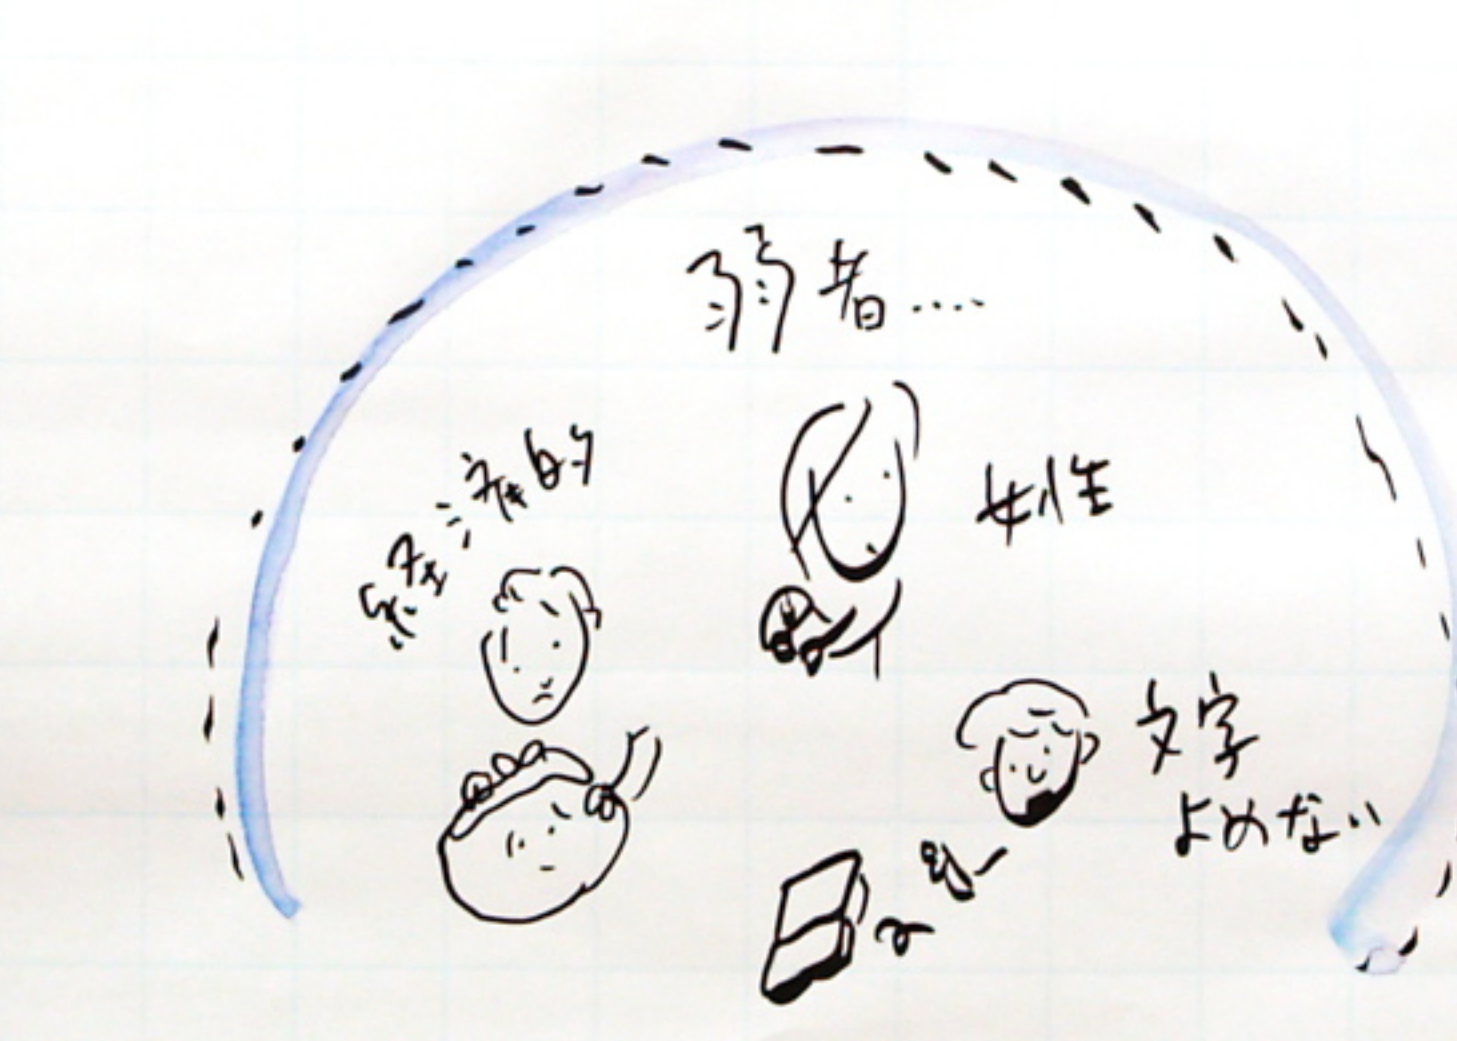 弱者....
経済的
女性
文字
よめない